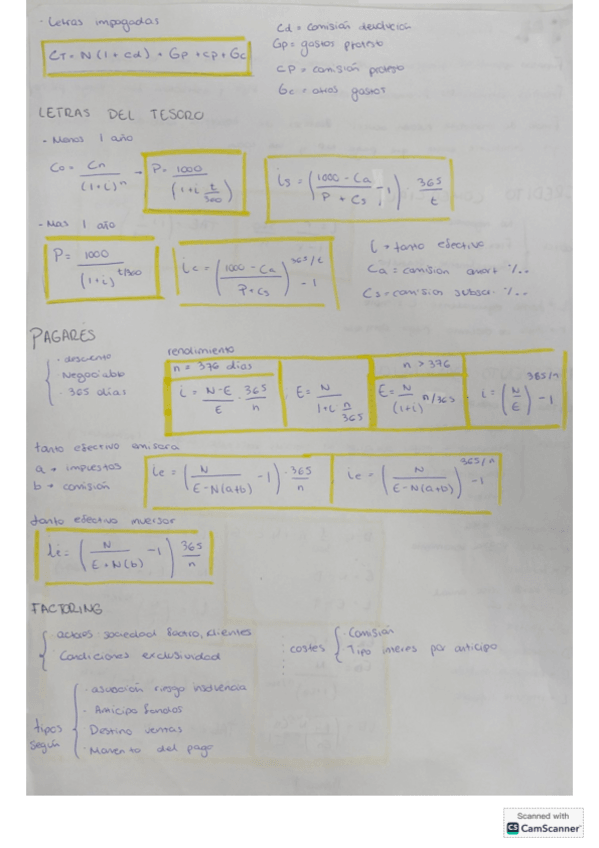 · Letras impagadas
CT = N (1 + cd) + Gp + cp + Gc
Cd = comisión devolución
Gp = gastos protesto
CP = comisión protesto
Gc = otros gastos
LETRAS DEL TESORO
- Menos 1 año
Co = Cn / (1+i)^n → P = 1000 / (1+i t/360)
is = ((1000 - Ca) / (P + Cs) - 1) 365/t
- Mas 1 año
P = 1000 / (1+i)^t/360
ic = ((1000 - Ca) / (P + Cs))^365/t - 1
i = tanto efectivo
Ca = comision amort ‰
Cs = comision subscr. ‰
PAGARÉS
· descuento
Negociable
· 365 días
rendimiento
n = 376 días
n > 376
i = (N - E) / E · 365/n
E = N / (1+i n/365)
E = N / (1+i)^n/365
i = (N/E)^365/n - 1
tanto efectivo emisora
a → impuestos
b → comisión
ie = (N / (E - N(a+b)) - 1) · 365/n
ie = (N / (E - N(a+b)))^365/n - 1
tanto efectivo inversor
ie = (N / (E + N(b)) - 1) 365/n
FACTORING
· actores: sociedad factro, clientes
Condiciones exclusividad
costes
· Comisión
Tipo interes por anticipo
tipos según
· asunción riesgo insolvencia
· Anticipo fondos
· Destino ventas
· Momento del pago
Scanned with
CS CamScanner